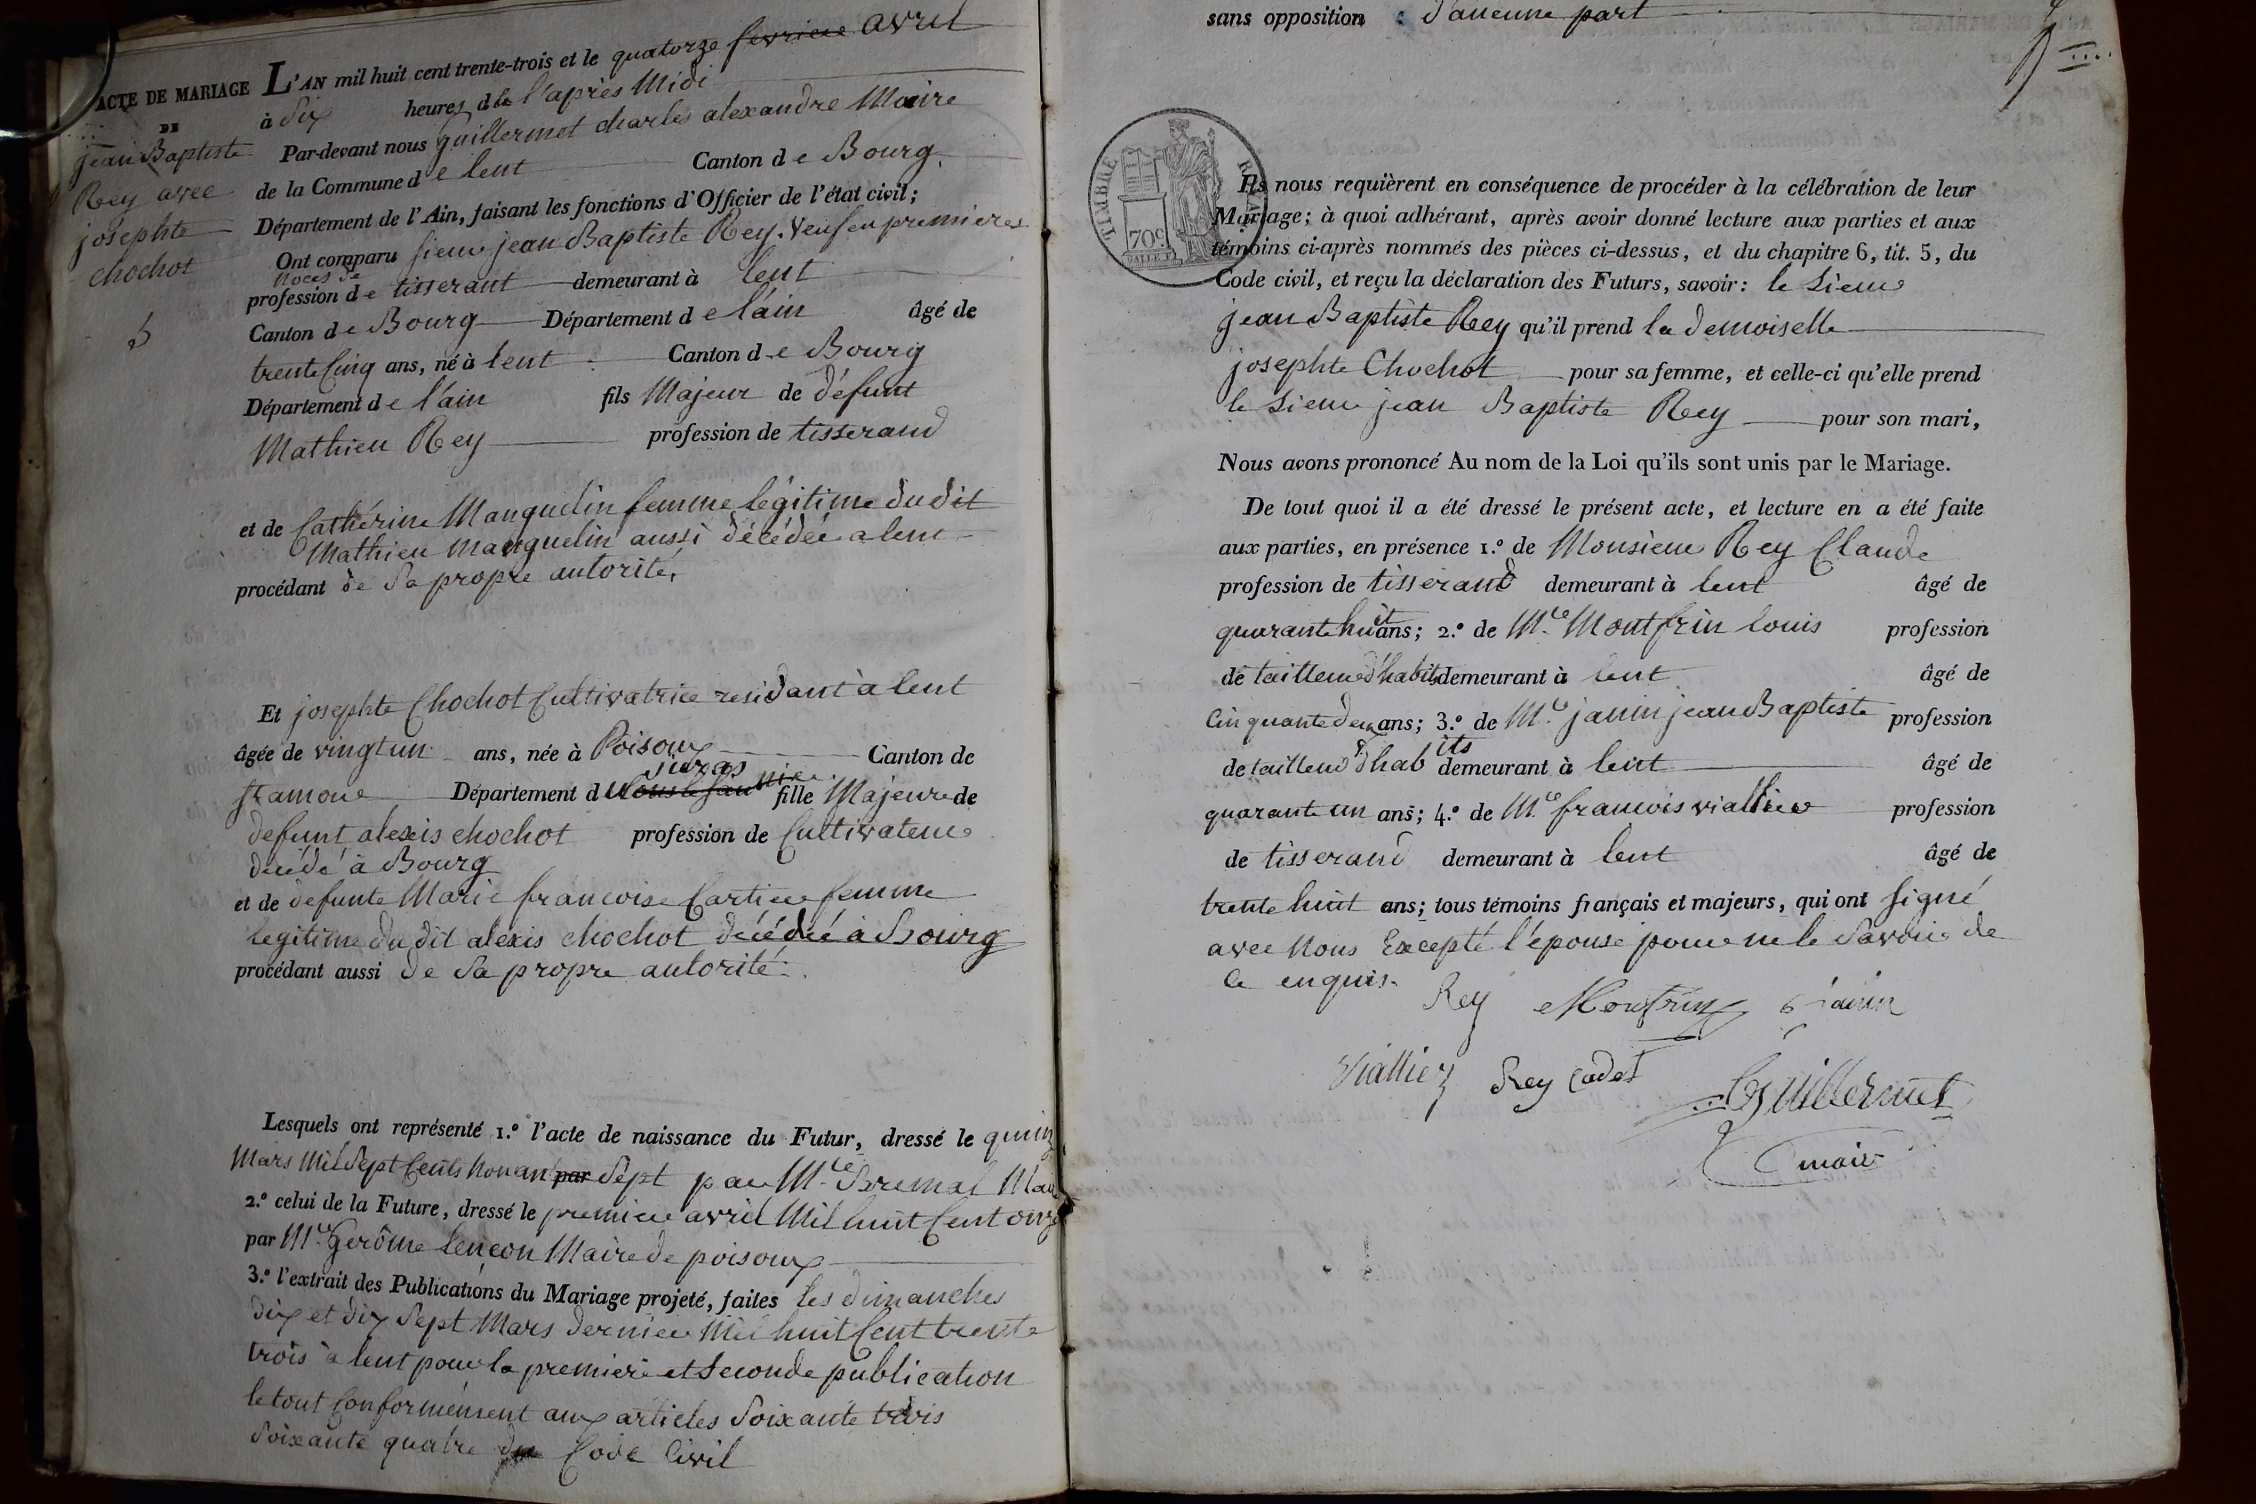 ACTE DE MARIAGE
DE
jean Baptiste
Rey avec
josephte
chochot
5
L'AN mil huit cent trente-trois et le quatorze fevrier avril
à Six heures de l'après Midi
Par-devant nous guillermet charles alexandre Maire
de la Commune de lent Canton de Bourg.
Département de l'Ain, faisant les fonctions d'Officier de l'état civil;
Ont comparu sieur jean Baptiste Rey. Veuf en premieres
noces de
profession de tisserant demeurant à lent
Canton de Bourg Département de l'ain âgé de
trente Cinq ans, né à lent Canton de Bourg
Département de l'ain fils Majeur de défunt
Mathieu Rey profession de tisserand
et de Cathérine Manguelin femme légitime du dit
Mathieu Manguelin aussi décédée a lent
procédant de Sa propre autorité,
Et josephte Chochot Cultivatrice residant à lent
âgée de vingt un ans, née à Poisoux Canton de
juras
st amour Département d fille Majeure de
defunt alexis chochot profession de Cultivateur
décédé à Bourg
et de defunte Marie francoise Cartier femme
legitime du dit alexis chochot décédée à Bourg
procédant aussi de Sa propre autorité.
Lesquels ont représenté 1.º l'acte de naissance du Futur, dressé le quinz
Mars Mil Sept Cents Nonant par Sept par Mr Maire
2.º celui de la Future, dressé le premier avril Mil huit Cent onze
par Mr Gerôme lencon Maire de poisoux
3.º l'extrait des Publications du Mariage projeté, faites les dimanches
dix et dix Sept Mars dernier Mil huit Cent trente
trois à lent pour la premiere et Seconde publication
le tout Conformément aux articles Soixante trois
Soixante quatre du Code Civil
sans opposition d'aucune part
TIMBRE ROYAL
70c
Ils nous requièrent en conséquence de procéder à la célébration de leur
Mariage; à quoi adhérant, après avoir donné lecture aux parties et aux
témoins ci-après nommés des pièces ci-dessus, et du chapitre 6, tit. 5, du
Code civil, et reçu la déclaration des Futurs, savoir: le Sieur
jean Baptiste Rey qu'il prend la demoiselle
josephte Chochot pour sa femme, et celle-ci qu'elle prend
le Sieur jean Baptiste Rey pour son mari,
Nous avons prononcé Au nom de la Loi qu'ils sont unis par le Mariage.
De tout quoi il a été dressé le présent acte, et lecture en a été faite
aux parties, en présence 1.º de Monsieur Rey Claude
profession de tisserand demeurant à lent âgé de
quarante huit ans; 2.º de Mr Montfrin louis profession
de tailleur d'habits demeurant à lent âgé de
Cinquante deux ans; 3.º de Mr janin jean Baptiste profession
de tailleur d'habits demeurant à lent âgé de
quarante un ans; 4.º de Mr francois viallier profession
de tisserand demeurant à lent âgé de
trente huit ans; tous témoins français et majeurs, qui ont signé
avec Nous Excepté l'épouse pour ne le Savoir de
ce enquis.
Rey Monfrin janin
Viallier Rey Cadet Guillermet
maire